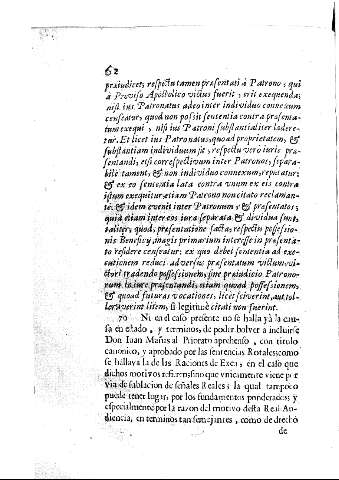 62
praiudicet; respectu tamen presentati à Patrono, qui
à Proviso Apostolico victus fuerit, erit exequenda;
nisi ius Patronatus adeo inter individuo connexum
censeatur, quod non possit sententia contra præsenta-
tum exequi, nisi ius Patroni substantialiter lædere-
tur. Et licet ius Patronatus, quoad proprietatem, &
substantiam individuum sit, respectu verò iuris præ-
sentandi, eiusi correspectivum inter Patronos, separa-
bile tamen, & non individuo connexum, reputatur;
& ex eo sententia lata contra vnum ex eis contra
istum exequitur etiam Patrono non citato reclaman-
te: & idem evenit inter Patronum, & presentatos;
quia etiam inter eos iura separata & dividua sunt,
taliter, quod, presentatione facta, respectu possessio-
nis Beneficij magis primarium interesse in presenta-
to residere censeatur: ex quo debet sententia ad exe-
cutionem reduci adversus presentatum victum, vi-
ctori tradendo possessionem, sine praiudicio Patrono-
rum in iure præsentandi, etiam quoad possessionem,
& quoad futuras vocationes, licet sciverint, aut tol-
leraverint litem, si legitimè citati non fuerint.
70 Ni en el caso presente no se halla yà la cau-
sa en estado, y terminos, de poder bolver à incluirse
Don Iuan Mañas al Priorato aprehenso, con titulo
canonico, y aprobado por las sentencias Rotales como
se hallava la de las Raciones de Exea; en el caso que
dichos motivos refirerense que vnicamente viene por
via de sublacion de señales Reales; la qual tampoco
puede tener lugar, por los fundamentos ponderados; y
especialmente por la razon del motivo desta Real Au-
diencia, en terminos tan semejantes, como de drecho
de